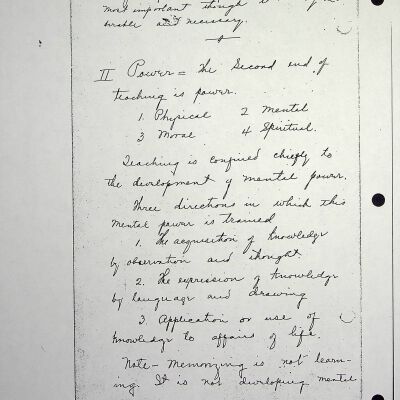 most important though
sirable and necessary.
II Power = The Second end of
teaching is power.
1. Physical 2 Mental
3 Moral 4 Spiritual.
Teaching is confined chiefly to
the development of mental power.
Three directions in which this
mental power is trained
1. The acquisition of knowledge
by observation and thought.
2. The expression of knowledge
by language and drawing
3. Application or use of
knowledge to affairs of life.
Note - Memorizing is not learn-
ing. It is not developing mental